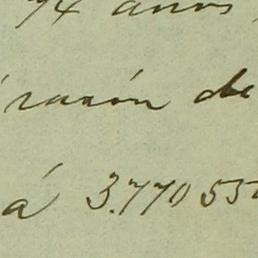 74 años
razón de
á 3.770 55